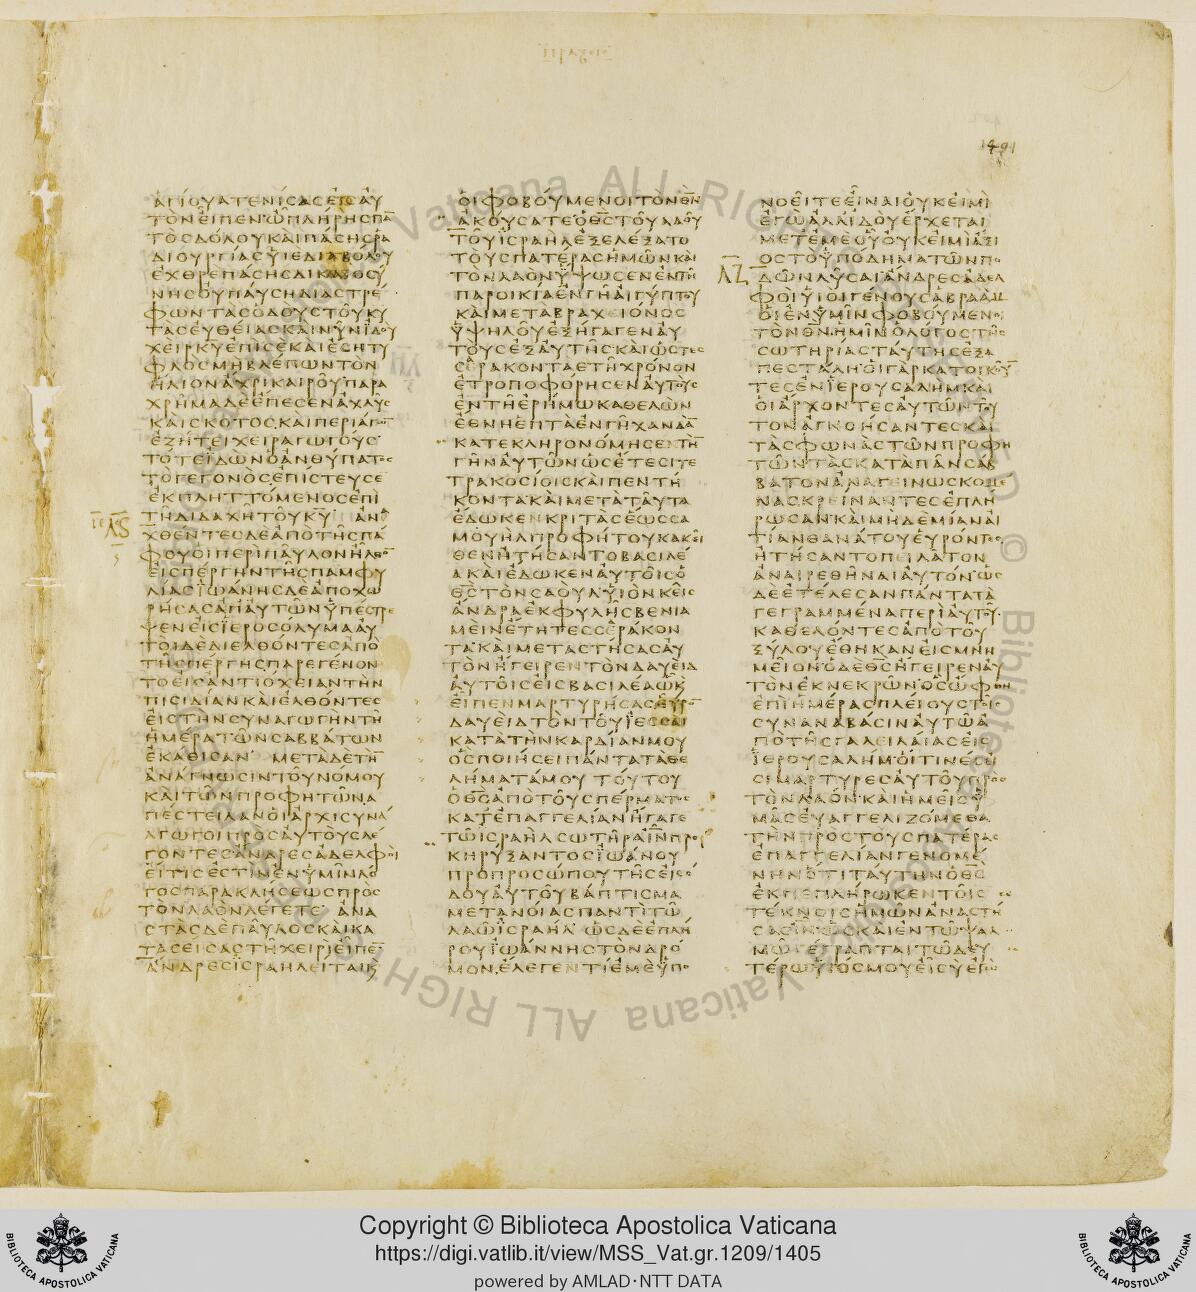 1401
ΑΓΙΟΥΑΤΕΝΙϹΑϹΕΙϹΑΥ
ΤΟΝΕΙΠΕΝΩΠΛΗΡΗϹΠΑ
ΤΟϹΔΟΛΟΥΚΑΙΠΑϹΗϹΡΑ
ΔΙΟΥΡΓΙΑϹΥΙΕΔΙΑΒΟΛΟΥ
ΕΧΘΡΕΠΑϹΗϹΔΙΚΑΙΟϹΥ
ΝΗϹΟΥΠΑΥϹΗΔΙΑϹΤΡΕ
ΦΩΝΤΑϹΟΔΟΥϹΤΟΥΚΥ
ΤΑϹΕΥΘΕΙΑϹΚΑΙΝΥΝΙΔΟΥ
ΧΕΙΡΚΥΕΠΙϹΕΚΑΙΕϹΗΤΥ
ΦΛΟϹΜΗΒΛΕΠΩΝΤΟΝ
ΗΛΙΟΝΑΧΡΙΚΑΙΡΟΥΠΑΡΑ
ΧΡΗΜΑΔΕΕΠΕϹΕΝΑΧΛΥϹ
ΚΑΙϹΚΟΤΟϹΚΑΙΠΕΡΙΑΓΩ
ΕΖΗΤΕΙΧΕΙΡΑΓΩΓΟΥϹ
ΤΟΤΕΙΔΩΝΟΑΝΘΥΠΑΤΟϹ
ΤΟΓΕΓΟΝΟϹΕΠΙϹΤΕΥϹΕ
ΕΚΠΛΗΤΤΟΜΕΝΟϹΕΠΙ
ΤΗΔΙΔΑΧΗΤΟΥΚΥ ΑΝΑ
ΧΘΕΝΤΕϹΔΕΑΠΟΤΗϹΠΑ
ΦΟΥΟΙΠΕΡΙΠΑΥΛΟΝΗΛΘΟ
ΕΙϹΠΕΡΓΗΝΤΗϹΠΑΜΦΥ
ΛΙΑϹΙΩΑΝΗϹΔΕΑΠΟΧΩ
ΡΗϹΑϹΑΠΑΥΤΩΝΥΠΕϹΤΡΕ
ΨΕΝΕΙϹΙΕΡΟϹΟΛΥΜΑΑΥ
ΤΟΙΔΕΔΙΕΛΘΟΝΤΕϹΑΠΟ
ΤΗϹΠΕΡΓΗϹΠΑΡΕΓΕΝΟΝ
ΤΟΕΙϹΑΝΤΙΟΧΕΙΑΝΤΗΝ
ΠΙϹΙΔΙΑΝΚΑΙΕΛΘΟΝΤΕϹ
ΕΙϹΤΗΝϹΥΝΑΓΩΓΗΝΤΗ
ΗΜΕΡΑΤΩΝϹΑΒΒΑΤΩΝ
ΕΚΑΘΙϹΑΝ ΜΕΤΑΔΕΤΗ
ΑΝΑΓΝΩϹΙΝΤΟΥΝΟΜΟΥ
ΚΑΙΤΩΝΠΡΟΦΗΤΩΝΑ
ΠΕϹΤΕΙΛΑΝΟΙΑΡΧΙϹΥΝΑ
ΓΩΓΟΙΠΡΟϹΑΥΤΟΥϹΛΕ
ΓΟΝΤΕϹΑΝΔΡΕϹΑΔΕΛΦΟΙ
ΕΙΤΙϹΕϹΤΙΝΕΝΥΜΙΝΛΟ
ΓΟϹΠΑΡΑΚΛΗϹΕΩϹΠΡΟϹ
ΤΟΝΛΑΟΝΛΕΓΕΤΕ ΑΝΑ
ϹΤΑϹΔΕΠΑΥΛΟϹΚΑΙΚΑ
ΤΑϹΕΙϹΑϹΤΗΧΕΙΡΙΕΙΠΕ
ΑΝΔΡΕϹΙϹΡΑΗΛΕΙΤΑΙΚ
ΟΙΦΟΒΟΥΜΕΝΟΙΤΟΝΘΝ
ΑΚΟΥϹΑΤΕΟΘϹΤΟΥΛΑΟΥ
ΤΟΥΙϹΡΑΗΛΕΞΕΛΕΞΑΤΟ
ΤΟΥϹΠΑΤΕΡΑϹΗΜΩΝΚΑΙ
ΤΟΝΛΑΟΝΥΨΩϹΕΝΕΝΤΗ
ΠΑΡΟΙΚΙΑΕΝΓΗΑΙΓΥΠΤΟΥ
ΚΑΙΜΕΤΑΒΡΑΧΕΙΟΝΟϹ
ΥΨΗΛΟΥΕΞΗΓΑΓΕΝΑΥ
ΤΟΥϹΕΞΑΥΤΗϹΚΑΙΩϹΤΕϹ
ϹΕΡΑΚΟΝΤΑΕΤΗΧΡΟΝΟΝ
ΕΤΡΟΠΟΦΟΡΗϹΕΝΑΥΤΟΥϹ
ΕΝΤΗΕΡΗΜΩΚΑΘΕΛΩΝ
ΕΘΝΗΕΠΤΑΕΝΓΗΧΑΝΑΑ
ΚΑΤΕΚΛΗΡΟΝΟΜΗϹΕΝΤΗ
ΓΗΝΑΥΤΩΝΩϹΕΤΕϹΙΤΕ
ΤΡΑΚΟϹΙΟΙϹΚΑΙΠΕΝΤΗ
ΚΟΝΤΑΚΑΙΜΕΤΑΤΑΥΤΑ
ΕΔΩΚΕΝΚΡΙΤΑϹΕΩϹϹΑ
ΜΟΥΗΛΠΡΟΦΗΤΟΥΚΑΚΕΙ
ΘΕΝΗΤΗϹΑΝΤΟΒΑϹΙΛΕ
ΑΚΑΙΕΔΩΚΕΝΑΥΤΟΙϹΟ
ΘϹΤΟΝϹΑΟΥΛΥΙΟΝΚΕΙϹ
ΑΝΔΡΑΕΚΦΥΛΗϹΒΕΝΙΑ
ΜΕΙΝΕΤΗΤΕϹϹΕΡΑΚΟΝ
ΤΑΚΑΙΜΕΤΑϹΤΗϹΑϹΑΥ
ΤΟΝΗΓΕΙΡΕΝΤΟΝΔΑΥΕΙΔ
ΑΥΤΟΙϹΕΙϹΒΑϹΙΛΕΑΩΚ
ΕΙΠΕΝΜΑΡΤΥΡΗϹΑϹΕΥΡΟ
ΔΑΥΕΙΔΤΟΝΤΟΥΙΕϹϹΑΙ
ΚΑΤΑΤΗΝΚΑΡΔΙΑΝΜΟΥ
ΟϹΠΟΙΗϹΕΙΠΑΝΤΑΤΑΘΕ
ΛΗΜΑΤΑΜΟΥ ΤΟΥΤΟΥ
ΟΘϹΑΠΟΤΟΥϹΠΕΡΜΑΤΟϹ
ΚΑΤΕΠΑΓΓΕΛΙΑΝΗΓΑΓΕ
ΤΩΙϹΡΑΗΛϹΩΤΗΡΑΙΝΠΡΟ
ΚΗΡΥΞΑΝΤΟϹΙΩΑΝΟΥ
ΠΡΟΠΡΟϹΩΠΟΥΤΗϹΕΙϹΟ
ΔΟΥΑΥΤΟΥΒΑΠΤΙϹΜΑ
ΜΕΤΑΝΟΙΑϹΠΑΝΤΙΤΩ
ΛΑΩΙϹΡΑΗΛ ΩϹΔΕΕΠΛΗ
ΡΟΥΙΩΑΝΝΗϹΤΟΝΔΡΟ
ΜΟΝΕΛΕΓΕΝΤΙΕΜΕΥΠΟ
ΝΟΕΙΤΕΕΙΝΑΙΟΥΚΕΙΜΙ
ΕΓΩΑΛΛΙΔΟΥΕΡΧΕΤΑΙ
ΜΕΤΕΜΕΟΥΟΥΚΕΙΜΙΑΞΙ
ΟϹΤΟΥΠΟΔΗΜΑΤΩΝΠΟ
ΛΖ ΔΩΝΛΥϹΑΙΑΝΔΡΕϹΑΔΕΛ
ΦΟΙΥΙΟΙΓΕΝΟΥϹΑΒΡΑΑΜ
ΟΙΕΝΥΜΙΝΦΟΒΟΥΜΕΝΟΙ
ΤΟΝΘΝΗΜΙΝΟΛΟΓΟϹΤΗϹ
ϹΩΤΗΡΙΑϹΤΑΥΤΗϹΕΞΑ
ΠΕϹΤΑΛΗΟΙΓΑΡΚΑΤΟΙΚΟΥ
ΤΕϹΕΝΙΕΡΟΥϹΑΛΗΜΚΑΙ
ΟΙΑΡΧΟΝΤΕϹΑΥΤΩΝΤΟΥ
ΤΟΝΑΓΝΟΗϹΑΝΤΕϹΚΑΙ
ΤΑϹΦΩΝΑϹΤΩΝΠΡΟΦΗ
ΤΩΝΤΑϹΚΑΤΑΠΑΝϹΑΒ
ΒΑΤΟΝΑΝΑΓΕΙΝΩϹΚΟΜΕ
ΝΑϹΚΡΕΙΝΑΝΤΕϹΕΠΛΗ
ΡΩϹΑΝΚΑΙΜΗΔΕΜΙΑΝΑΙ
ΤΙΑΝΘΑΝΑΤΟΥΕΥΡΟΝΤΕϹ
ΗΤΗϹΑΝΤΟΠΕΙΛΑΤΟΝ
ΑΝΑΙΡΕΘΗΝΑΙΑΥΤΟΝΩϹ
ΔΕΕΤΕΛΕϹΑΝΠΑΝΤΑΤΑ
ΓΕΓΡΑΜΜΕΝΑΠΕΡΙΑΥΤΟΥ
ΚΑΘΕΛΟΝΤΕϹΑΠΟΤΟΥ
ΞΥΛΟΥΕΘΗΚΑΝΕΙϹΜΝΗ
ΜΕΙΟΝΟΔΕΘϹΗΓΕΙΡΕΝΑΥ
ΤΟΝΕΚΝΕΚΡΩΝΟϹΩΦΘΗ
ΕΠΙΗΜΕΡΑϹΠΛΕΙΟΥϹΤΟΙϹ
ϹΥΝΑΝΑΒΑϹΙΝΑΥΤΩΑ
ΠΟΤΗϹΓΑΛΕΙΛΑΙΑϹΕΙϹ
ΙΕΡΟΥϹΑΛΗΜΟΙΤΙΝΕϹΕΙ
ϹΙΜΑΡΤΥΡΕϹΑΥΤΟΥΠΡΟϹ
ΤΟΝΛΑΟΝΚΑΙΗΜΕΙϹΥ
ΜΑϹΕΥΑΓΓΕΛΙΖΟΜΕΘΑ
ΤΗΝΠΡΟϹΤΟΥϹΠΑΤΕΡΑϹ
ΕΠΑΓΓΕΛΙΑΝΓΕΝΟΜΕ
ΝΗΝΟΤΙΤΑΥΤΗΝΟΘϹ
ΕΚΠΕΠΛΗΡΩΚΕΝΤΟΙϹ
ΤΕΚΝΟΙϹΗΜΩΝΑΝΑϹΤΗ
ϹΑϹΙΝΩϹΚΑΙΕΝΤΩΨΑΛ
ΜΩΓΕΓΡΑΠΤΑΙΤΩΔΕΥ
ΤΕΡΩΥΙΟϹΜΟΥΕΙϹΥΕΓΩ
Copyright © Biblioteca Apostolica Vaticana
https://digi.vatlib.it/view/MSS_Vat.gr.1209/1405
powered by AMLAD·NTT DATA
BIBLIOTECA APOSTOLICA VATICANA
BIBLIOTECA APOSTOLICA VATICANA